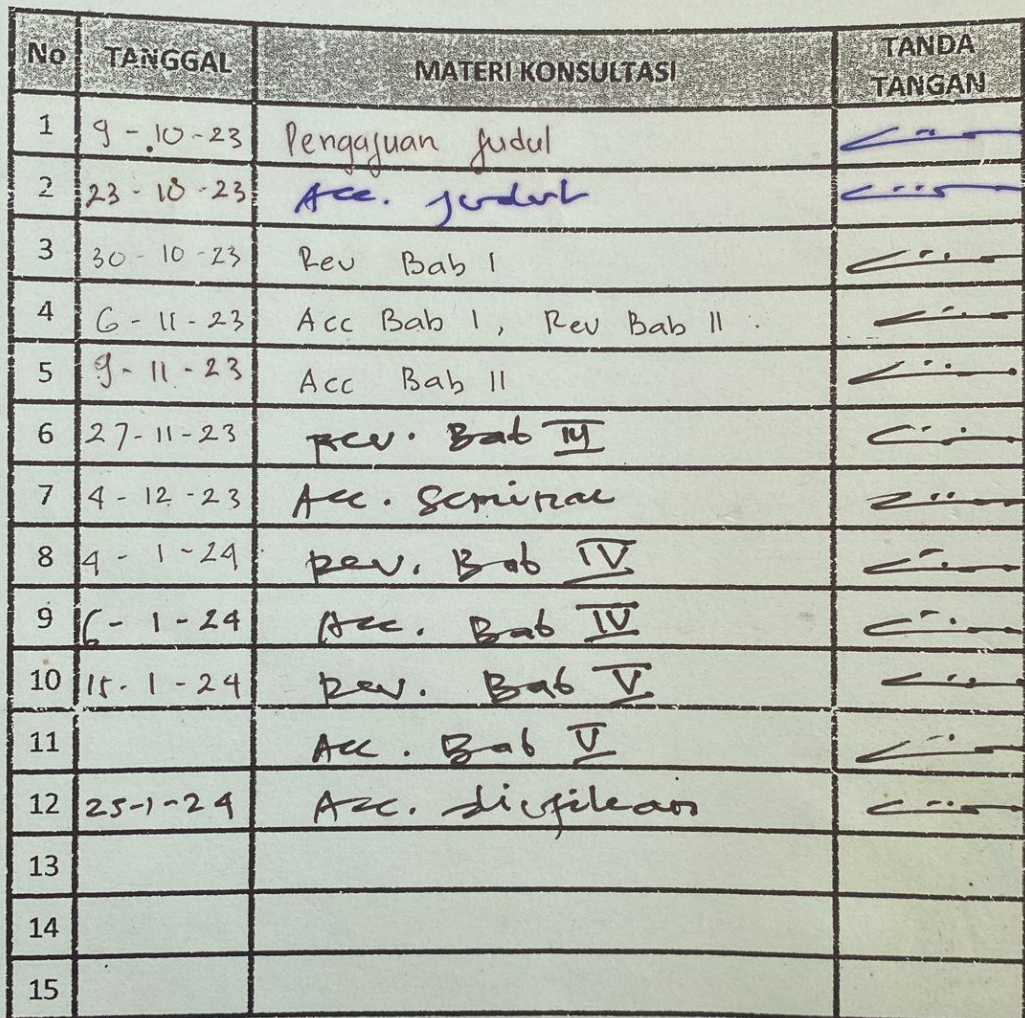 No TANGGAL MATERI KONSULTASI TANDA TANGAN
1 9-10-23 Pengajuan Judul
2 23-10-23 Acc. Judul
3 30-10-23 Rev Bab I
4 6-11-23 Acc Bab I, Rev Bab II.
5 9-11-23 Acc Bab II
6 27-11-23 Rev. Bab III
7 4-12-23 Acc. Seminar
8 4-1-24 Rev. Bab IV
9 6-1-24 Acc. Bab IV
10 15-1-24 Rev. Bab V
11 Acc. Bab V
12 25-1-24 Acc. diujikan
13
14
15